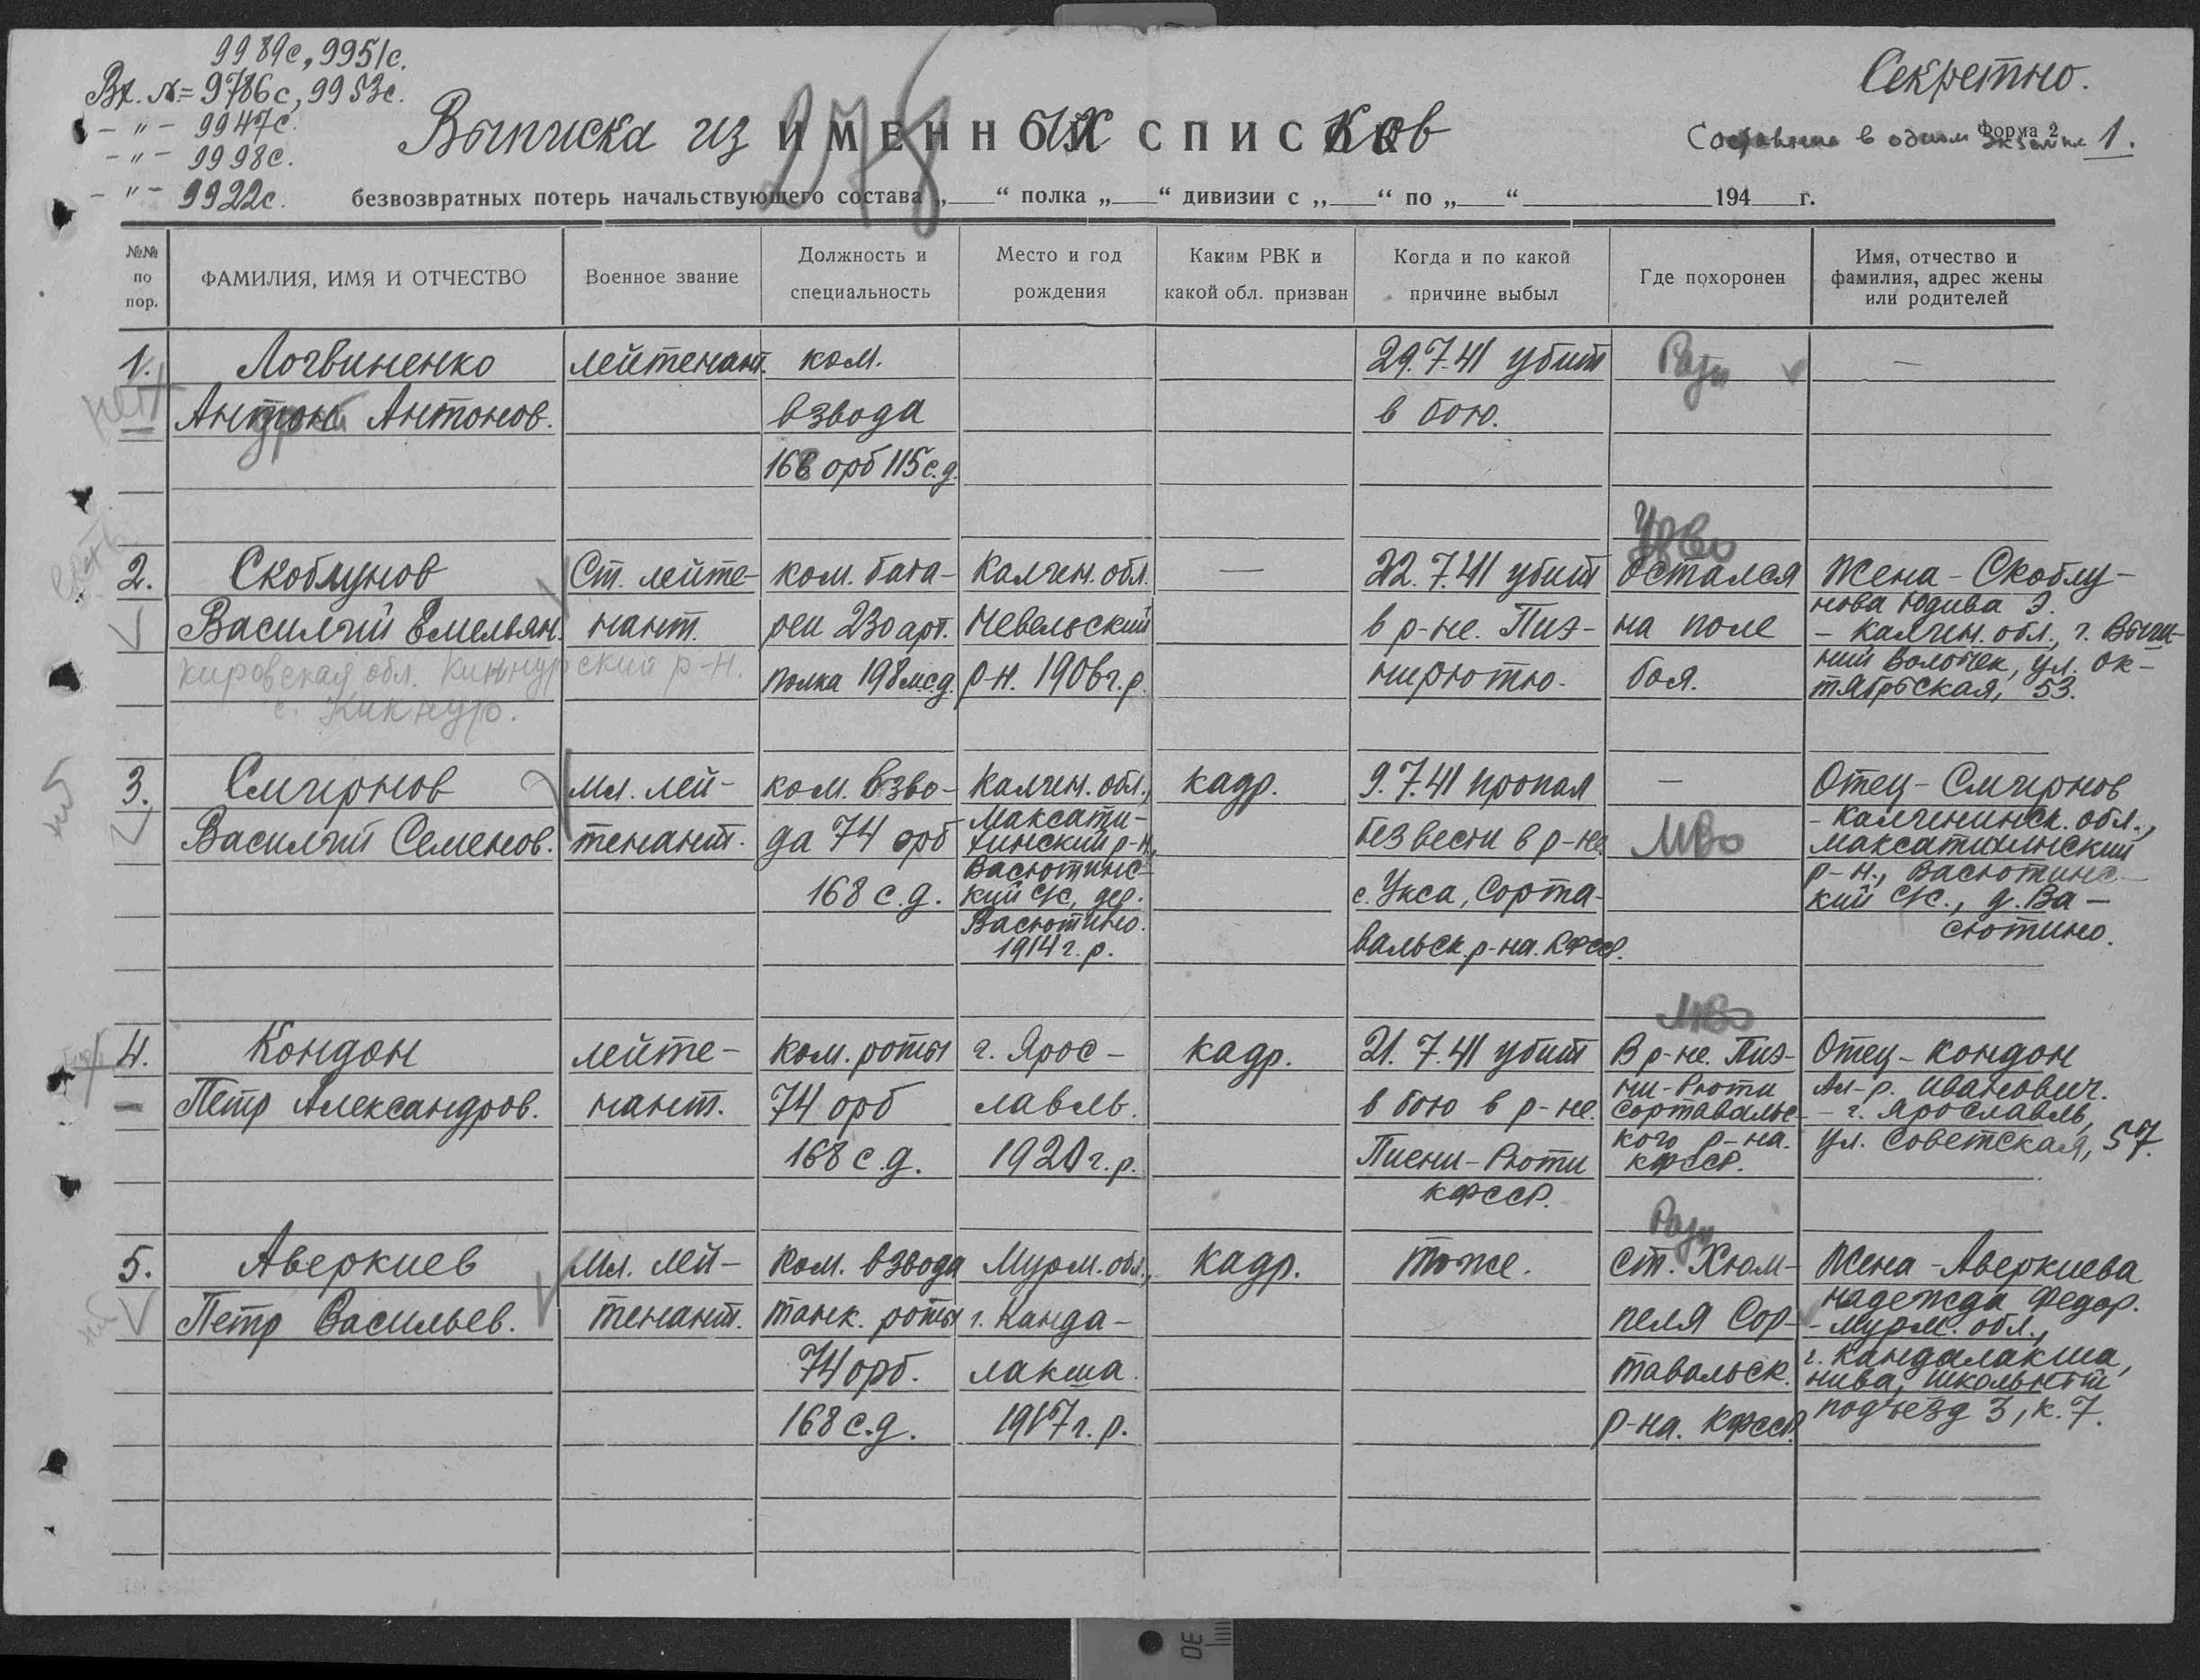 9989с, 9951с.
Вх. №= 9786с, 9953с.
- " - 9947с.
- " - 9998с.
- " - 9922с.
Секретно.
Форма 2
Составлено в одном экземпл. 1.
278
Выписка из ИМЕННЫХ СПИСКОВ
безвозвратных потерь начальствующего состава „ “ полка „ “ дивизии с „ “ по „ “ 194 г.
№№ по пор.
ФАМИЛИЯ, ИМЯ И ОТЧЕСТВО
Военное звание
Должность и специальность
Место и год рождения
Каким РВК и какой обл. призван
Когда и по какой причине выбыл
Где похоронен
Имя, отчество и фамилия, адрес жены или родителей
1.
нет
Логвиненко
Антон Антонов.
лейтенант.
ком.
взвода
168 орб 115 с.д.
29.7.41 убит
в бою.
—
2.
Скоблунов
Василий Емельян.
Кировская обл. Кикнурский р-н.
с. Кикнур.
Ст. лейте-
нант.
ком. бата-
реи 230 арт.
полка 198 мс.д.
Калин. обл.
Невельский
р-н. 1908 г.р.
—
22.7.41 убит
в р-не. Пиэ-
нирютю.
УрВо
остался
на поле
боя.
Жена - Скоблу-
нова Юдива Э.
- Калин. обл., г. Выш-
ний Волочек, ул. Ок-
тябрьская, 53.
3.
Смирнов
Василий Семенов.
Мл. лей-
тенант.
ком. взво-
да 74 орб
168 с.д.
Калин. обл.,
Максати-
хинский р-н,
Васютинс-
кий с/с, дер.
Васютино.
1914 г.р.
кадр.
9.7.41 пропал
без вести в р-не
с. Укса, Сорта-
вальск. р-на. КФССР.
—
МВо
Отец - Смирнов
- Калининск. обл.,
Максатихинский
р-н., Васютинс-
кий с/с., д. Ва-
сютино.
4.
Кондон
Петр Александров.
лейте-
нант.
ком. роты
74 орб
168 с.д.
г. Ярос-
лавль.
1920 г.р.
кадр.
21.7.41 убит
в бою в р-не.
Пиени-Рюти
КФССР.
МВо
В р-не. Пиэ-
ни-Рюти
Сортавальс-
кого р-на.
КФССР.
Отец - Кондон
Ал-р. Иванович.
- г. Ярославль,
ул. Советская, 57.
5.
Аверкиев
Петр Васильев.
Мл. лей-
тенант.
Ком. взвода
танк. роты
74 орб.
168 с.д.
Мурм. обл.,
г. Канда-
лакша.
1917 г.р.
кадр.
тоже.
ст. Хюм-
пеля Сор-
тавальск.
р-на. КФССР.
Жена - Аверкиева
Надежда Федор.
- Мурм. обл.,
г. Кандалакша,
Нива, Школьный
подъезд 3, к. 7.